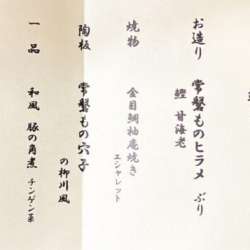 お造り　常磐ものヒラメ　ぶり
鰹　甘海老
焼物　金目鯛柚庵焼き
エシャレット
陶板　常磐もの穴子
の柳川風
一品　和風　豚の角煮　チンゲン菜